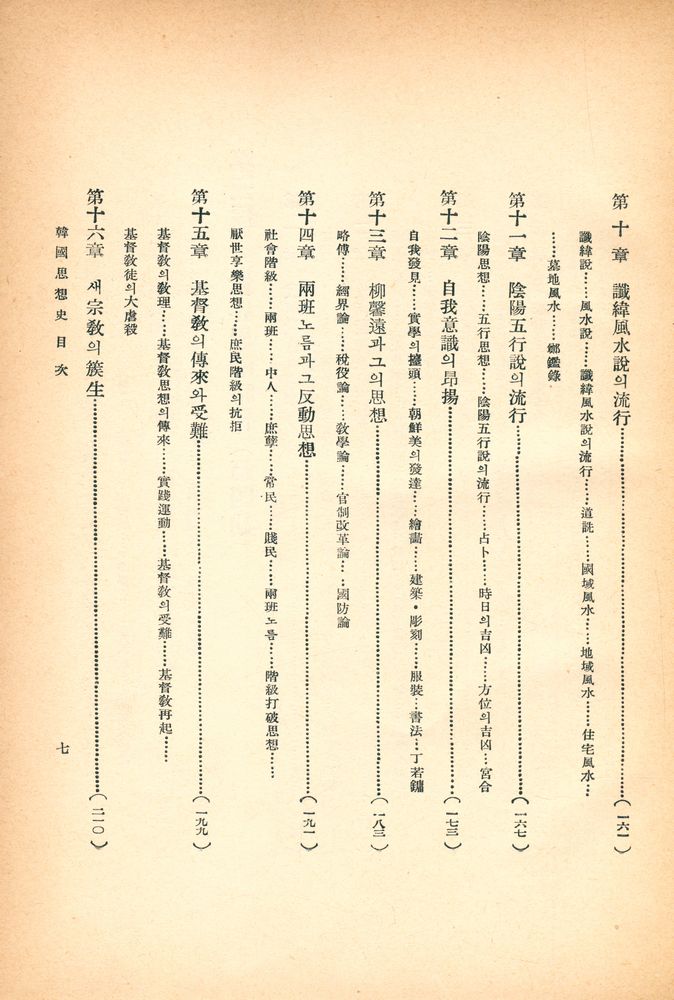 第十章 讖緯風水說의流行……(一六一)
讖緯說……風水說……讖緯風水說의流行……道詵……國域風水……地域風水……住宅風水……
……墓地風水……鄭鑑錄
第十一章 陰陽五行說의流行……(一六七)
陰陽思想……五行思想……陰陽五行說의流行……占卜……時日의吉凶……方位의吉凶…宮合
第十二章 自我意識의昂揚……(一七三)
自我發見……實學의擡頭……朝鮮美의發達……繪畵……建築・彫刻……服裝…書法…丁若鏞
第十三章 柳馨遠과그의思想……(一八三)
略傳……經界論……稅役論……敎學論……官制改革論……國防論
第十四章 兩班노름과그反動思想……(一九一)
社會階級……兩班……中人……庶孼……常民……賤民……兩班노름……階級打破思想……
厭世享樂思想……庶民階級의抗拒
第十五章 基督敎의傳來와受難……(一九九)
基督敎의敎理……基督敎思想의傳來……實踐運動……基督敎의受難……基督敎再起……
基督敎徒의大虐殺
第十六章 새宗敎의簇生……(二一〇)
韓國思想史 目次
七